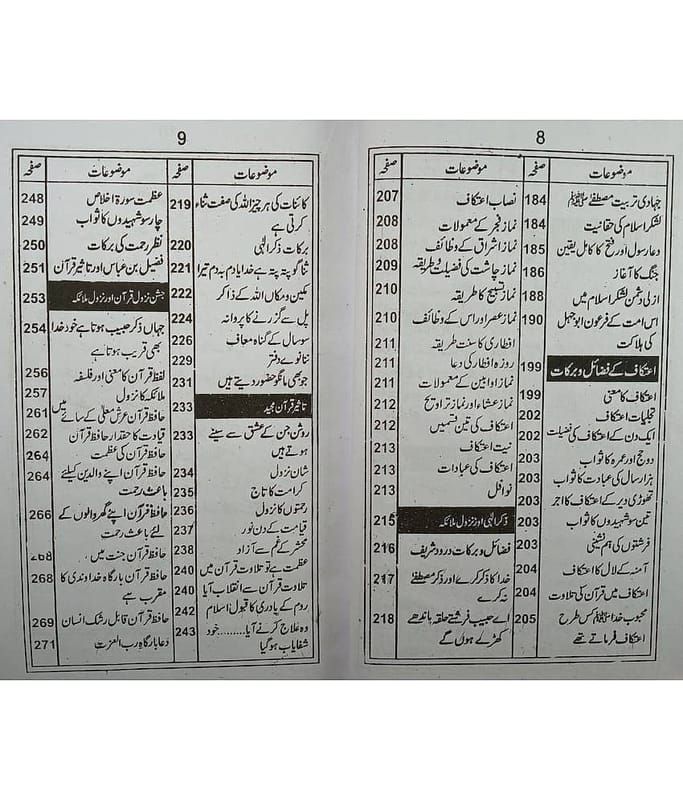 8
موضوعات صفحہ موضوعات صفحہ
جہادی تربیت مصطفیٰ ﷺ 184
لشکر اسلام کی حقانیت 184
دعا رسول اور فتح کا کامل یقین 185
جنگ کا آغاز 186
ازلی دشمن لشکر اسلام میں 188
اس امت کے فرعون ابوجہل 190
کی ہلاکت
اعتکاف کے فضائل و برکات 199
اعتکاف کا معنی 199
تجلیات اعتکاف 202
ایک دن کے اعتکاف کی فضیلت 202
دو حج اور عمرہ کا ثواب 203
ہزار سال کی عبادت کا ثواب 203
تھوڑی دیر کے اعتکاف کا اجر 203
تین سو شہیدوں کا ثواب 203
فرشتوں کی ہم نشینی 203
آمنہ کے لال کا اعتکاف 204
اعتکاف میں قرآن کی تلاوت 204
محبوب خدا ﷺ کس طرح 205
اعتکاف فرماتے تھے
نصاب اعتکاف 207
نماز فجر کے معمولات 208
نماز اشراق کے وظائف 208
نماز چاشت کی فضیلت و طریقہ 209
نماز تسبیح کا طریقہ 210
نماز عصر اور اس کے وظائف 210
افطاری کا سنت طریقہ 211
روزہ افطار کی دعا 211
نماز اوابین کے معمولات 211
نماز عشاء اور نماز تراویح 212
اعتکاف کی تین قسمیں 212
نیت اعتکاف 213
اعتکاف کی عبادات 213
نوافل 213
ذکر الٰہی اور نزول ملائکہ 215
فضائل و برکات درود شریف 216
خدا کا ذکر کرے اور ذکر مصطفیٰ 217
نہ کرے
اے حبیب فرشتے حلقہ باندھے 218
کھڑے ہوں گے
9
موضوعات صفحہ موضوعات صفحہ
کائنات کی ہر چیز اللہ کی صفت ثناء 219
کرتی ہے
برکات ذکر الٰہی 220
ثنا گو پتہ پتہ ہے خدایا دم بہ دم تیرا 221
مکین و مکاں اللہ کے ذاکر 222
پل سے گزرنے کا پروانہ 224
سو سال کے گناہ معاف 226
ننانوے دفتر 229
جو بھی مانگو حضور دیتے ہیں 231
تاثیر قرآن مجید 233
روشن جن کے عشق سے سینے 233
ہوتے ہیں
شان نزول 234
کرامت کا تاج 235
رحمتوں کا نزول 236
قیامت کے دن نور 237
محشر کے غم سے آزاد 238
عظمت ہے تو تلاوت قرآن میں 240
تلاوت قرآن سے انقلاب آیا 240
روم کے پادری کا قبول اسلام 242
وہ علاج کرنے آیا......... خود 243
شفایاب ہو گیا
عظمت سورۃ اخلاص 248
چار سو شہیدوں کا ثواب 249
نظر رحمت کی برکات 250
فضیل بن عباس اور تاثیر قرآن 251
جشن نزول قرآن اور نزول ملائکہ 253
جہاں ذکر حبیب ہوتا ہے خود خدا 254
بھی قریب ہوتا ہے
لفظ قرآن کا معنی اور فلسفہ 256
ملائکہ کا نزول 257
حافظ قرآن عرش معلیٰ کے سائے میں 261
قیادت کا حقدار حافظ قرآن 262
حافظ قرآن کی عظمت 264
حافظ قرآن اپنے والدین کیلئے 264
باعث رحمت
حافظ قرآن اپنے گھر والوں کے 266
لئے باعث رحمت
حافظ قرآن جنت میں 268
حافظ قرآن بارگاہ خداوندی کا 268
مقرب ہے
حافظ قرآن قابل رشک انسان 269
دعا بارگاہ رب العزت 271